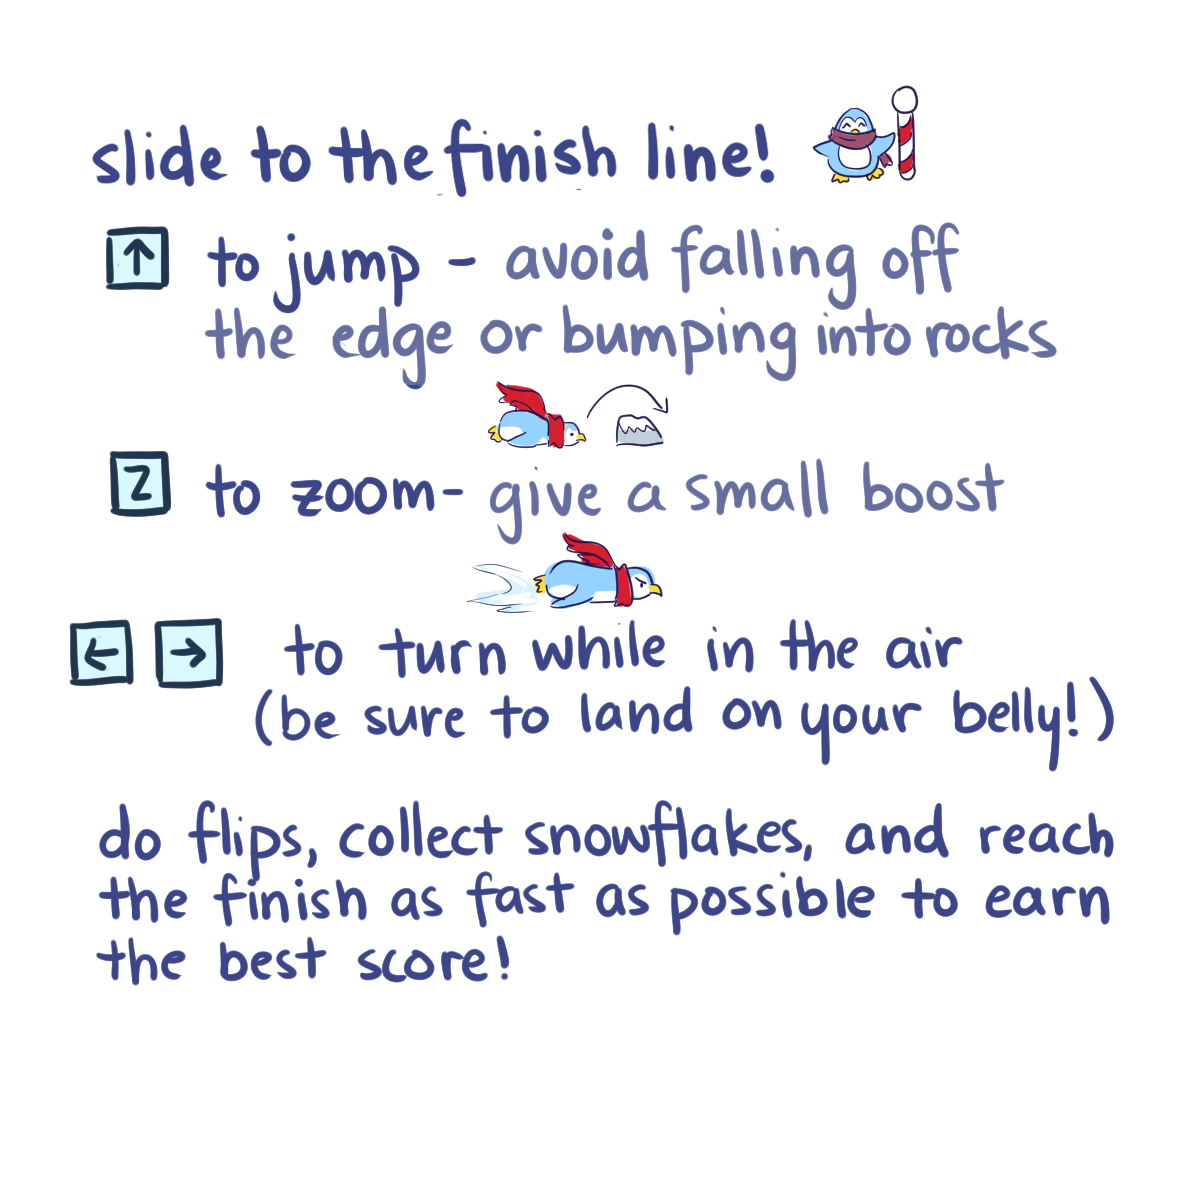 slide to the finish line!
↑ to jump - avoid falling off
the edge or bumping into rocks
Z to zoom- give a small boost
← → to turn while in the air
(be sure to land on your belly!)
do flips, collect snowflakes, and reach
the finish as fast as possible to earn
the best score!